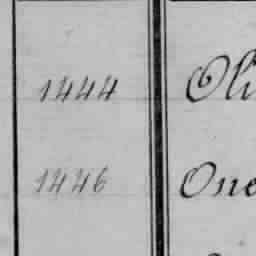 1444 Oli
1446 One